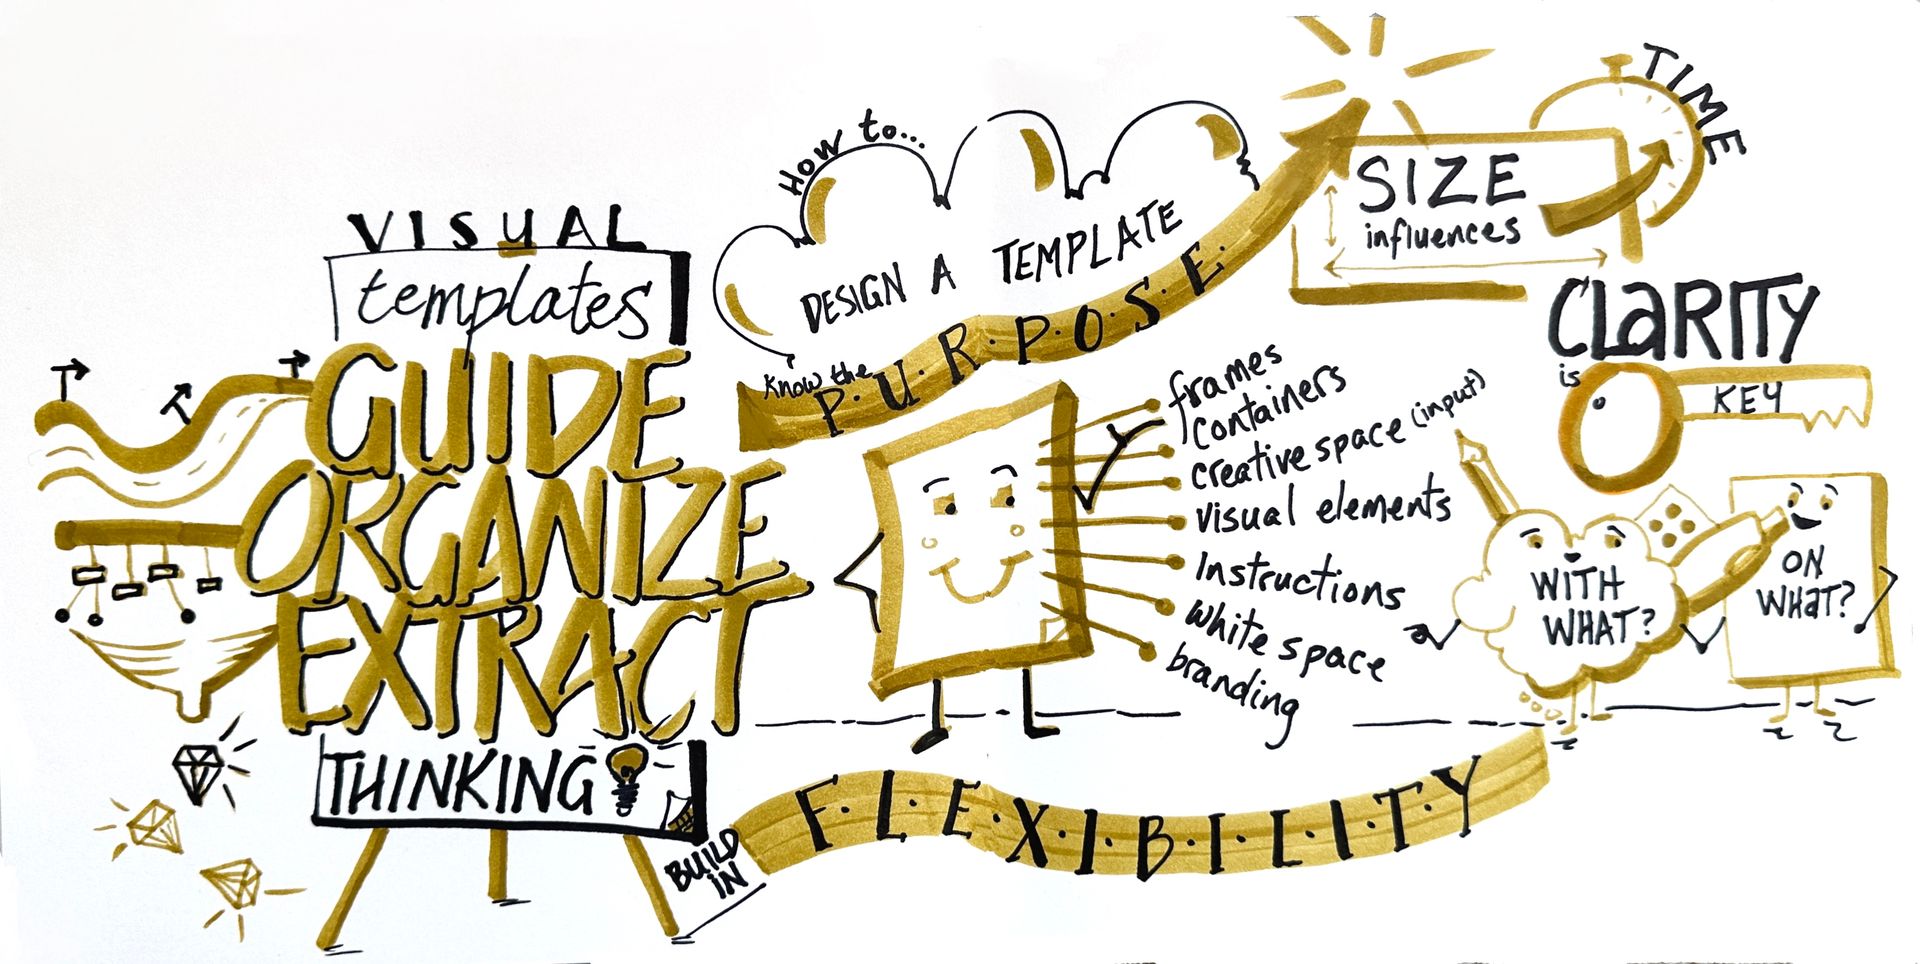 VISUAL
templates
GUIDE
ORGANIZE
EXTRACT
THINKING
How to...
DESIGN A TEMPLATE
Know the
P.U.R.P.O.S.E.
frames
containers
creative space (input)
visual elements
Instructions
white space
branding
SIZE
influences
TIME
CLaRITY
is
KEY
WITH
WHAT?
ON
WHaT?
BUILD
IN
F.L.E.X.I.B.I.L.I.T.Y